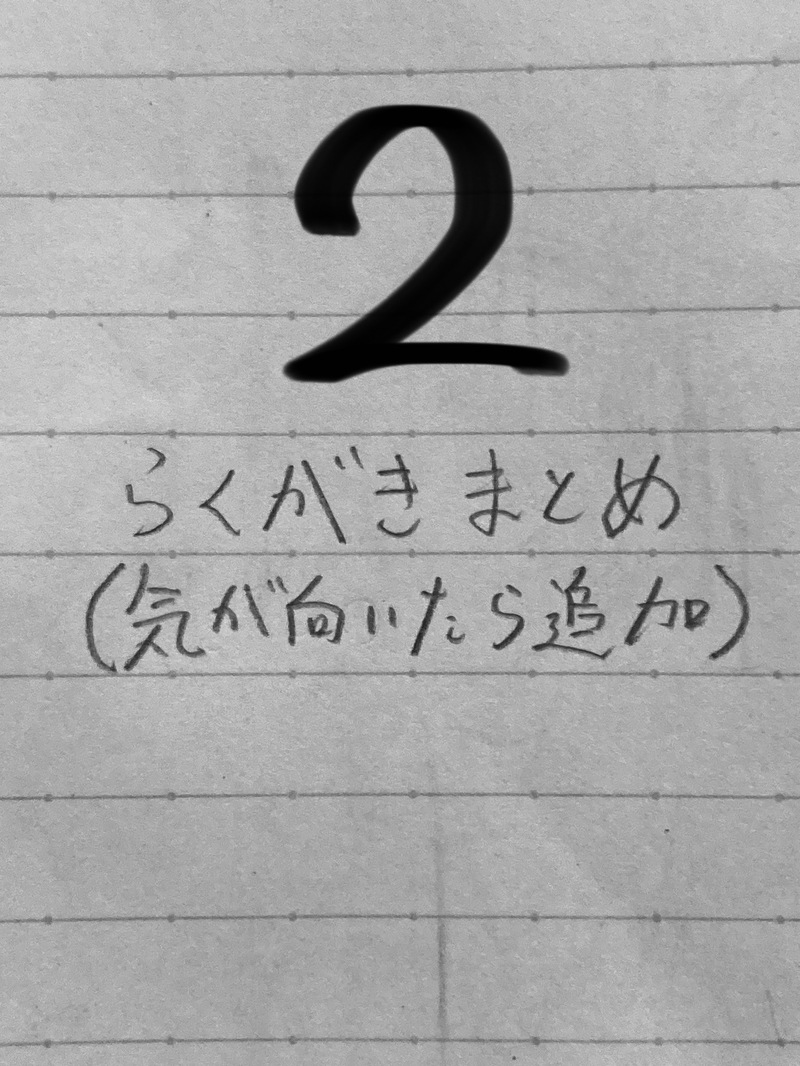 2
らくがきまとめ
(気が向いたら追加)